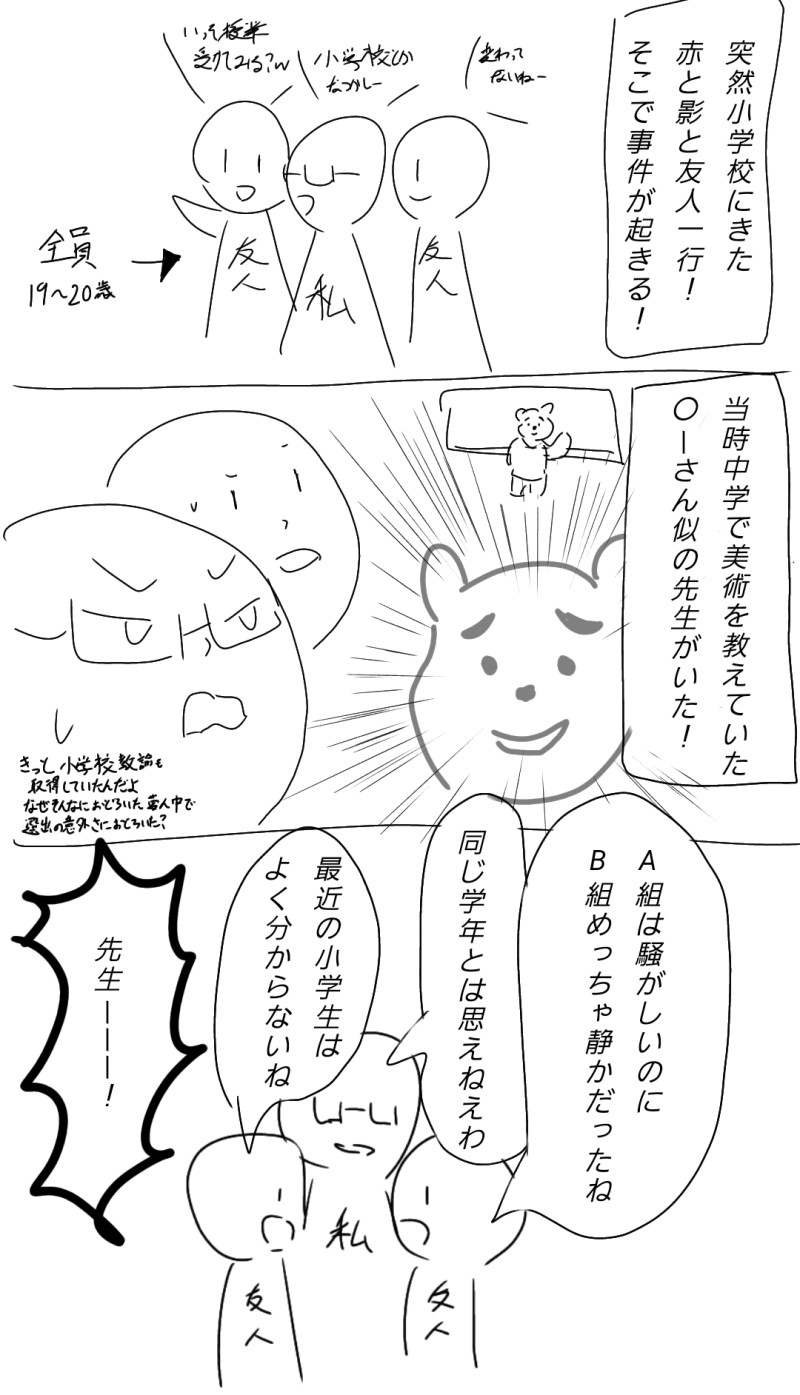 突然小学校にきた
赤と影と友人一行！
そこで事件が起きる！
変わって
ないねー
小学校とか
なつかしー
いっそ授業
受けてみる？w
全員
19〜20歳
友人
私
友人
当時中学で美術を教えていた
〇ーさん似の先生がいた！
きっと小学校教諭も
取得していたんだよ
なぜそんなにおどろいた
選出の意外さにおどろいた？
A組は騒がしいのに
B組めっちゃ静かだったね
同じ学年とは思えねえわ
最近の小学生は
よく分からないね
先生ーーー！
友人
私
友人